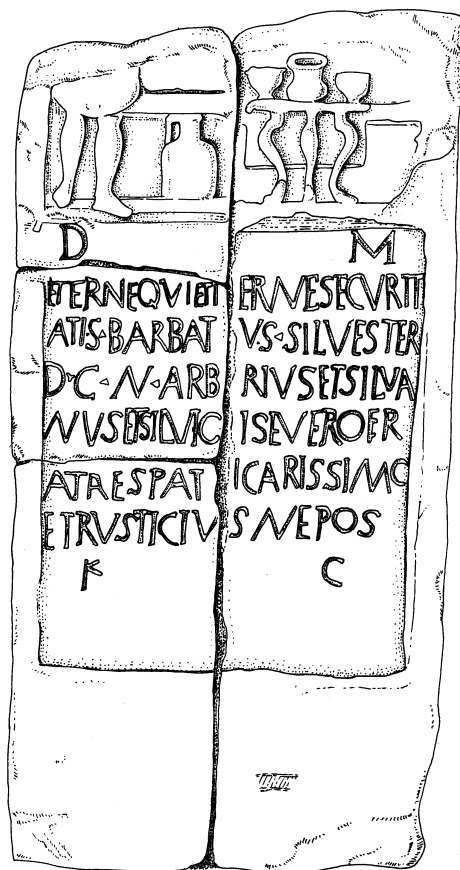 D M
ETERNEQVIETI ERVVESECVRIT
ATIS·BARBAT VS·SILVESTER
D·C·N·ARB RIVSETSILVA
NVSETSILVIC ISEVEROER
ATRESPAT ICARISSIMO
ETRVSTICIV S NEPOS
F C